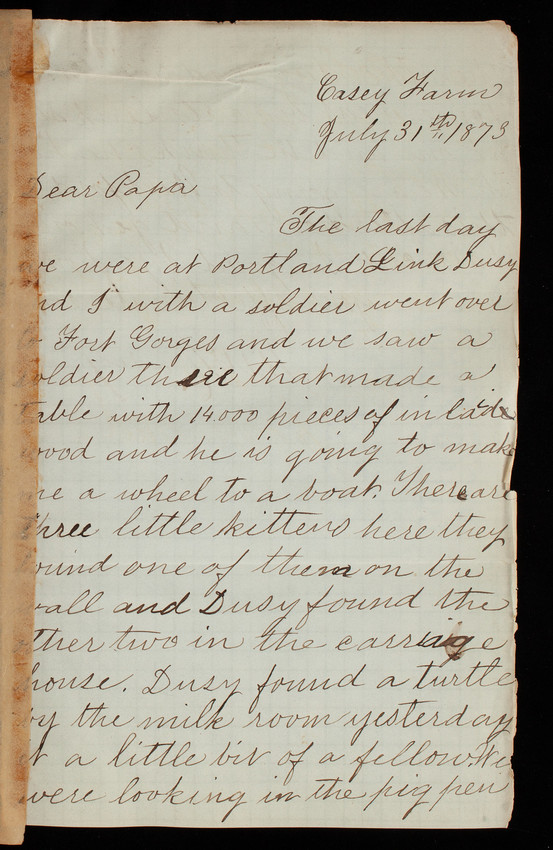 Casey Farm
July 31th 1873
Dear Papa
The last day
we were at Portland Link Dusy
and I with a soldier went over
Fort Gorges and we saw a
soldier there that made a
table with 14.000 pieces of in laide
wood and he is going to make
me a wheel to a boat. There are
three little kittens here they
found one of them on the
wall and Dusy found the
other two in the carriage
house. Dusy found a turtle
by the milk room yesterday
a little bit of a fellow We
were looking in the pig pen